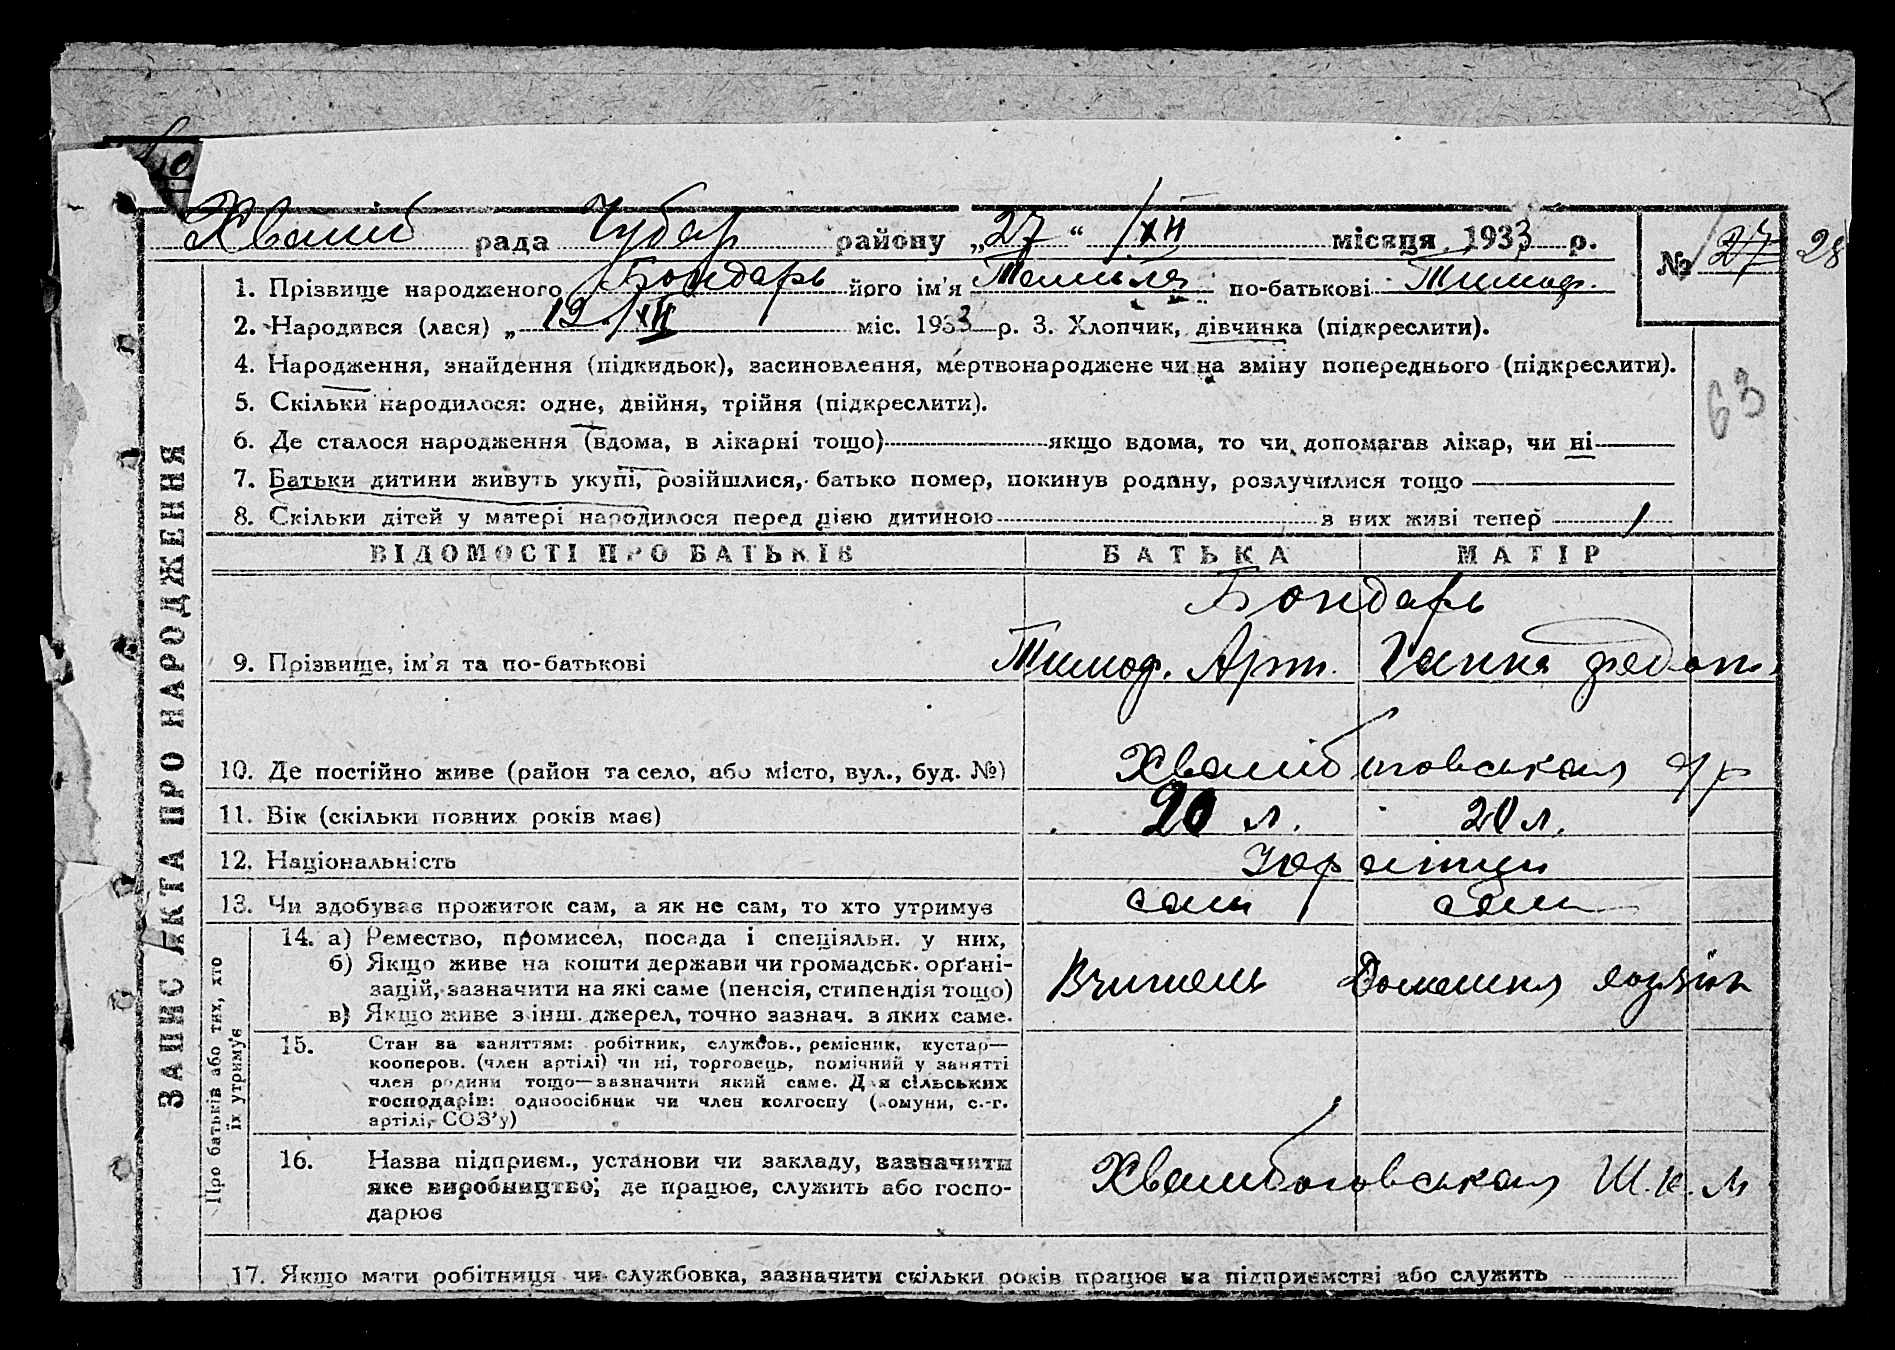 Хваліб рада Чубар району „27“ XII місяця 1933 р.
№ 27 28
1. Прізвище народженого Бондарь його ім'я по-батькові Тимоф.
2. Народився (лася) „19 XII міс. 1933 р. 3. Хлопчик, дівчинка (підкреслити).
4. Народження, знайдення (підкидьок), засиновлення, мертвонароджене чи на зміну попереднього (підкреслити).
63
5. Скільки народилося: одне, двійня, трійня (підкреслити).
6. Де сталося народження (вдома, в лікарні тощо) якщо вдома, то чи допомагав лікар, чи ні
7. Батьки дитини живуть укупі, розійшлися, батько помер, покинув родину, розлучилися тощо
8. Скільки дітей у матері народилося перед цією дитиною з них живі тепер 1
ЗАПИС АКТА ПРО НАРОДЖЕННЯ
ВІДОМОСТІ ПРО БАТЬКІВ БАТЬКА МАТІР
Бондарь
9. Прізвище, ім'я та по-батькові Тимоф. Арт. Ганна
10. Де постійно живе (район та село, або місто, вул., буд. №) Хвалибоговськая с/р
11. Вік (скільки повних років має) 20 л. 20 л.
12. Національність Українци
13. Чи здобуває прожиток сам, а як не сам, то хто утримує сам сама
Про батьків або тих, хто
їх утримує
14. а) Ремество, промисел, посада і спеціяльн. у них,
б) Якщо живе на кошти держави чи громадськ. органі-
зацій, зазначити на які саме (пенсія, стипендія тощо) Вчитель Домашня хозяйк
в) Якщо живе з інш. джерел, точно зазнач. з яких саме.
15. Стан за заняттям: робітник, службов., ремісник, кустар—
кооперов. (член артілі) чи ні, торговець, помічний у занятті
член родини тощо—зазначити який саме. Для сільських
господарів: одноосібник чи член колгоспу (комуни, с.-г.
артілі, СОЗ'у)
16. Назва підприєм., установи чи закладу, зазначити
яке виробництво; де працює, служить або госпо- Хвалибоговськая Ш.к.м
дарює
17. Якщо мати робітниця чи службовка, зазначити скільки років працює на підприємстві або служить